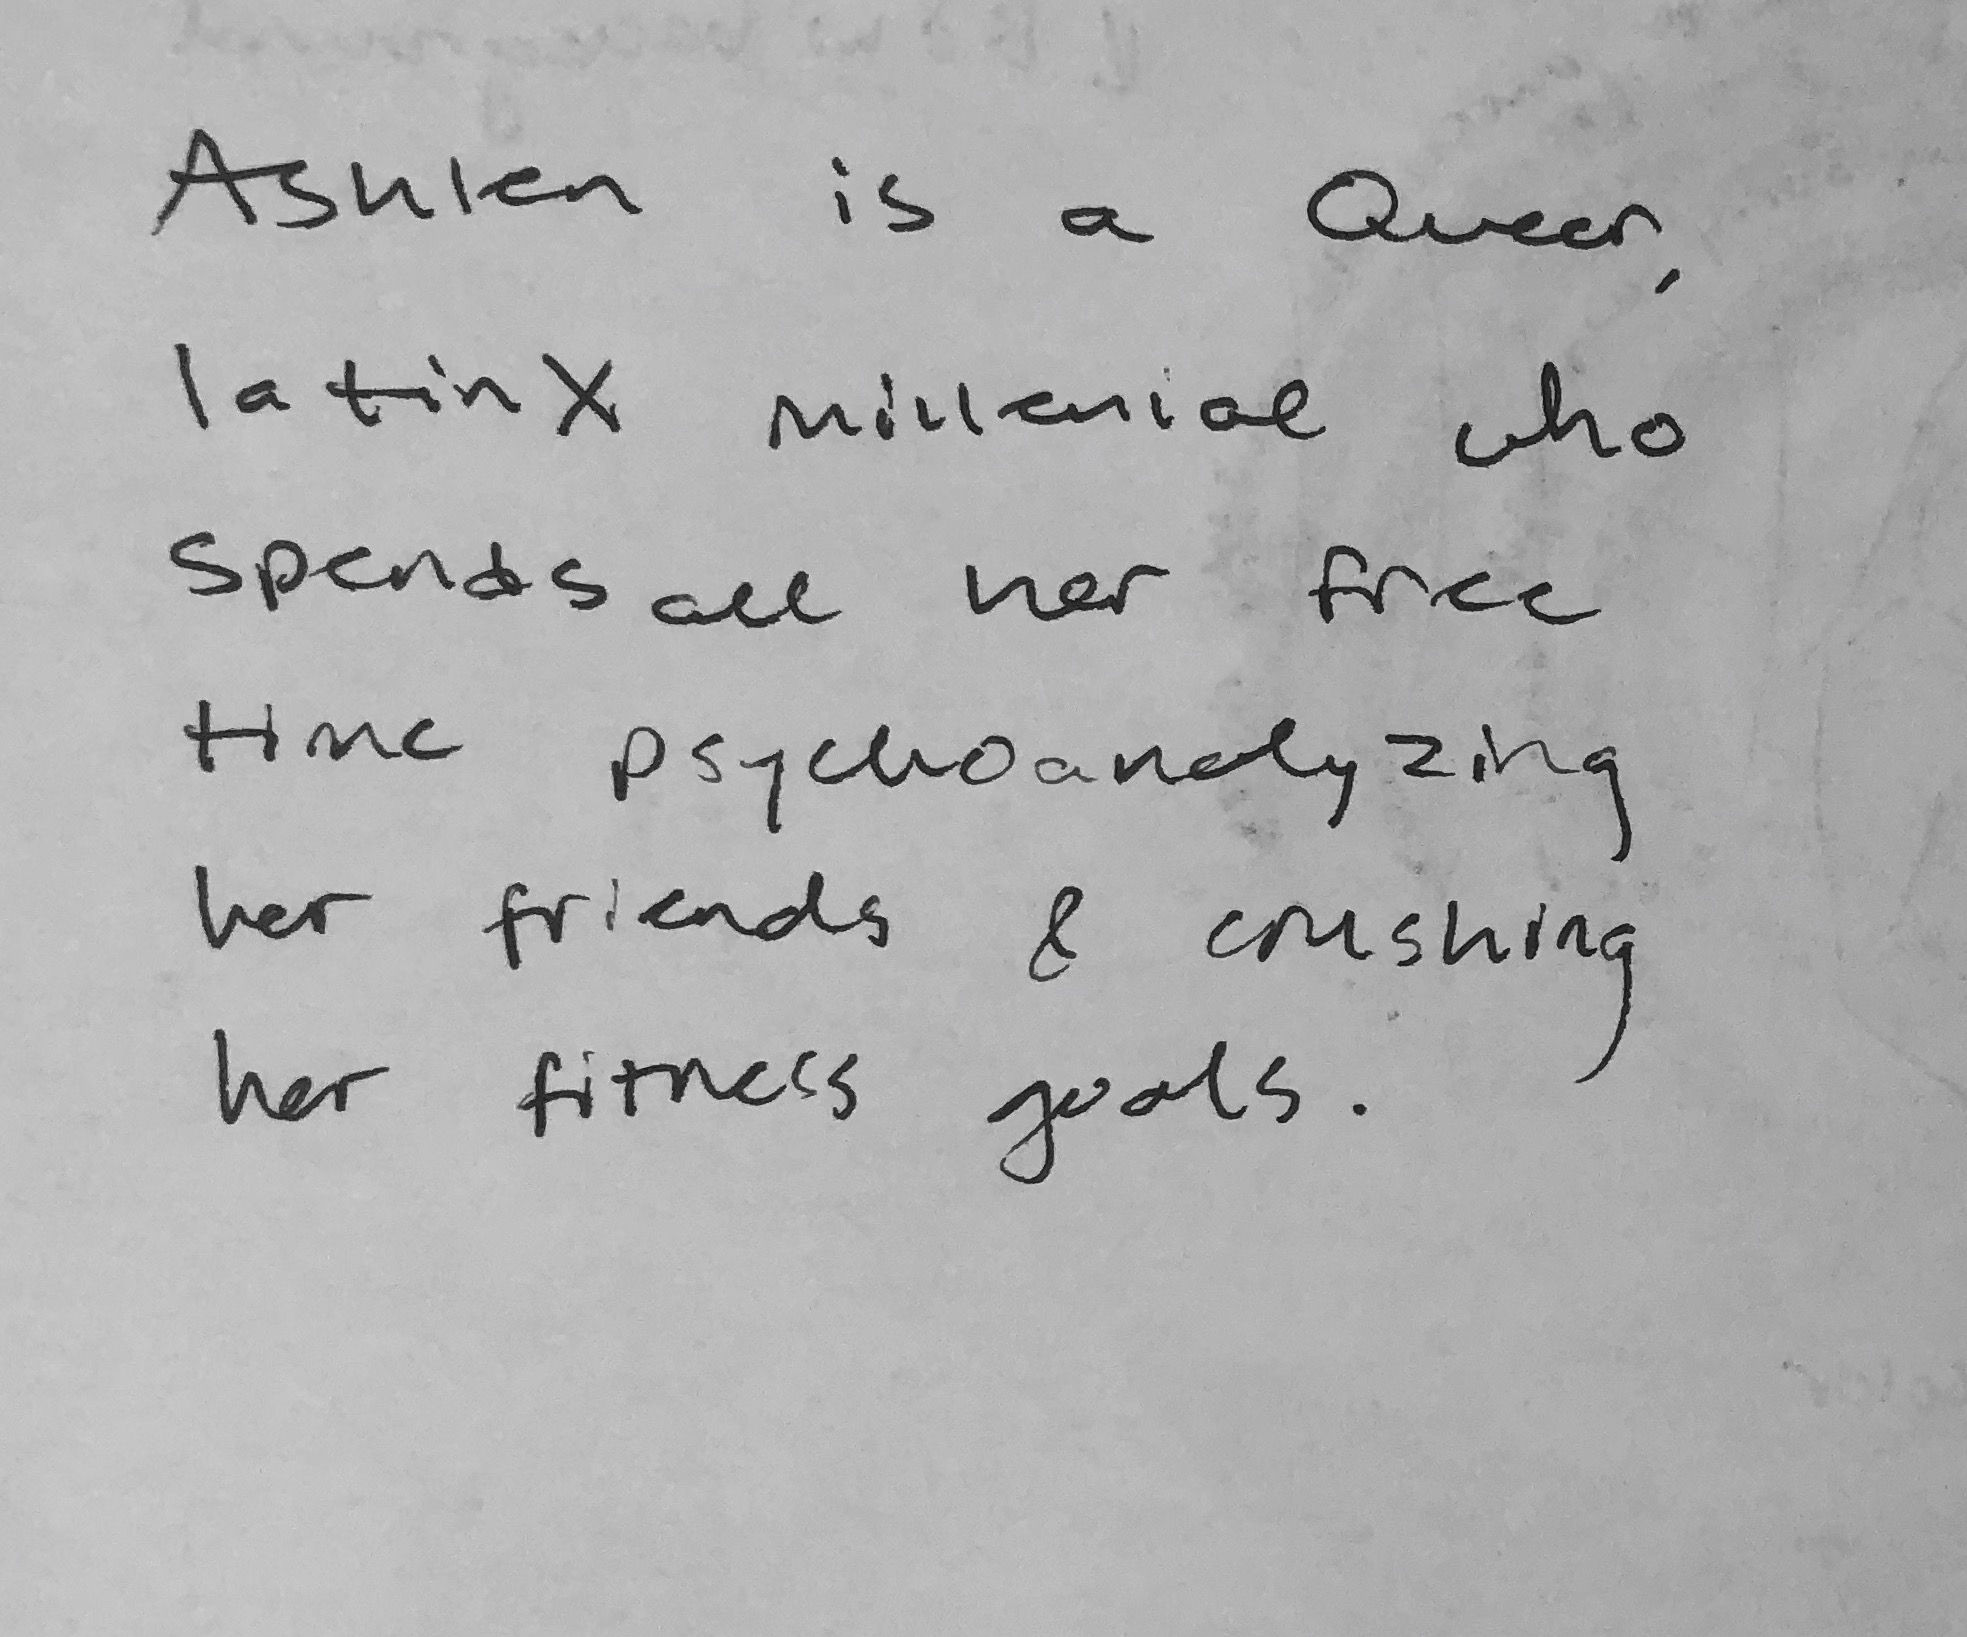 Ashlen is a Queer,
latinX millenial who
spends all her free
time psychoanalyzing
her friends & crushing
her fitness goals.